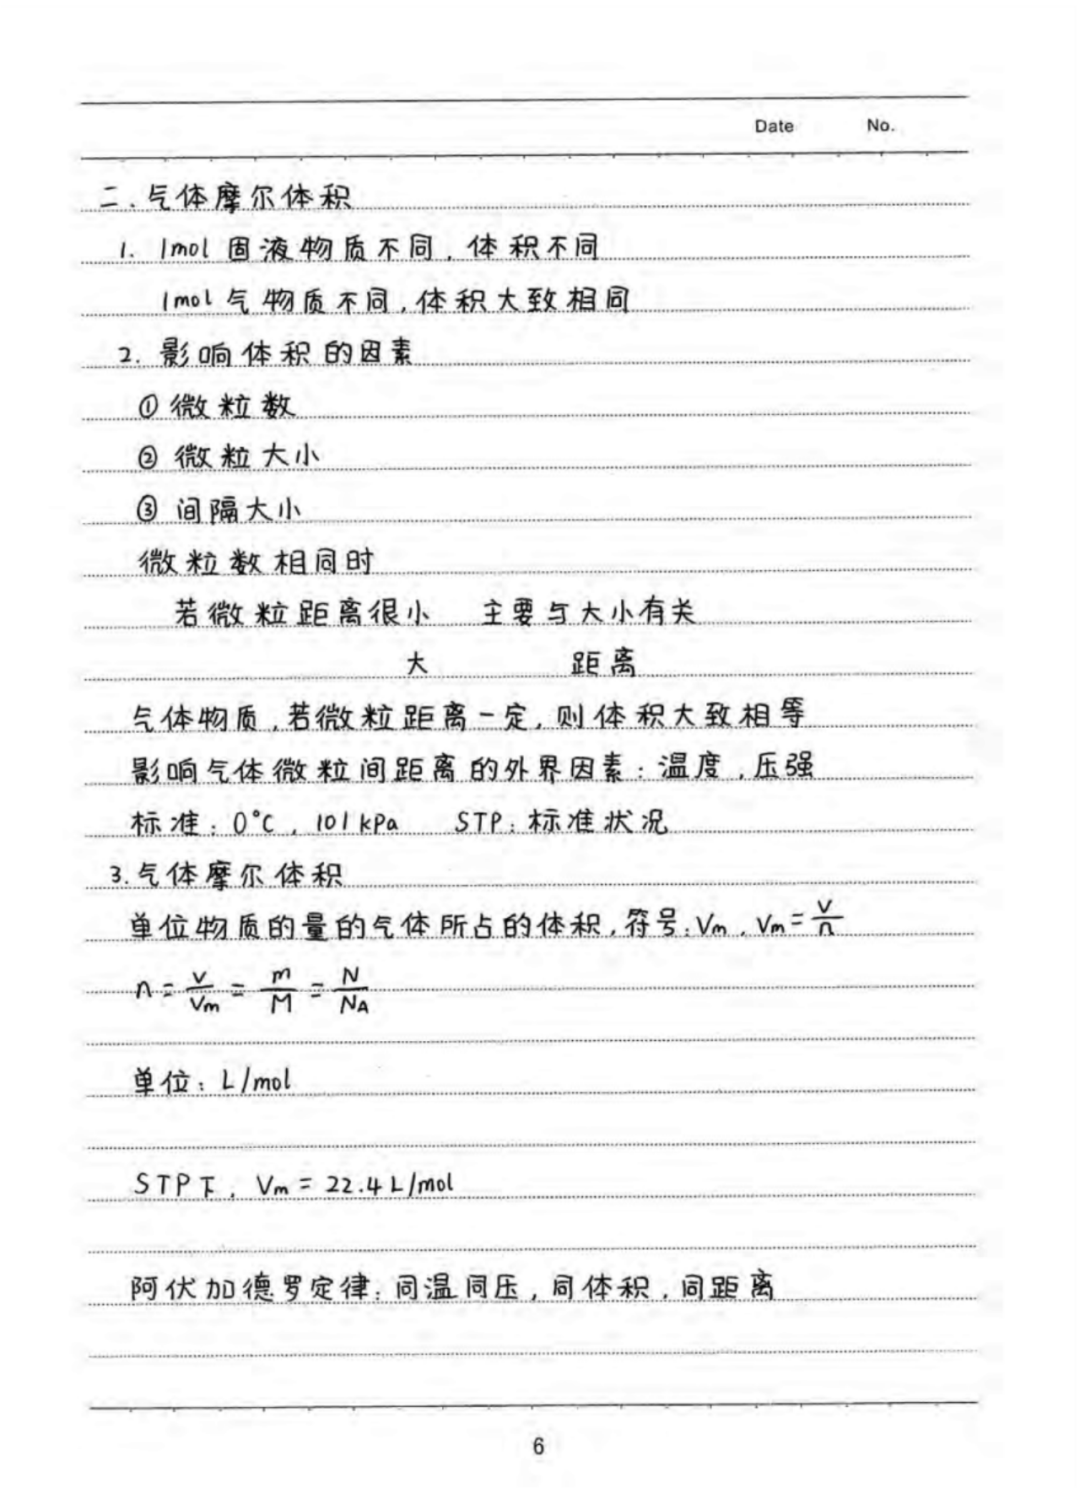 Date No.
二.气体摩尔体积
1. 1mol 固液物质不同,体积不同
1mol 气物质不同,体积大致相同
2. 影响体积的因素
① 微粒数
② 微粒大小
③ 间隔大小
微粒数相同时
若微粒距离很小 主要与大小有关
大 距离
气体物质,若微粒距离一定,则体积大致相等
影响气体微粒间距离的外界因素:温度,压强
标准:0°C,101kPa STP:标准状况
3.气体摩尔体积
单位物质的量的气体所占的体积,符号:Vm,Vm=V/n
n=V/Vm=m/M=N/NA
单位:L/mol
STP下,Vm=22.4L/mol
阿伏加德罗定律:同温同压,同体积,同距离
6